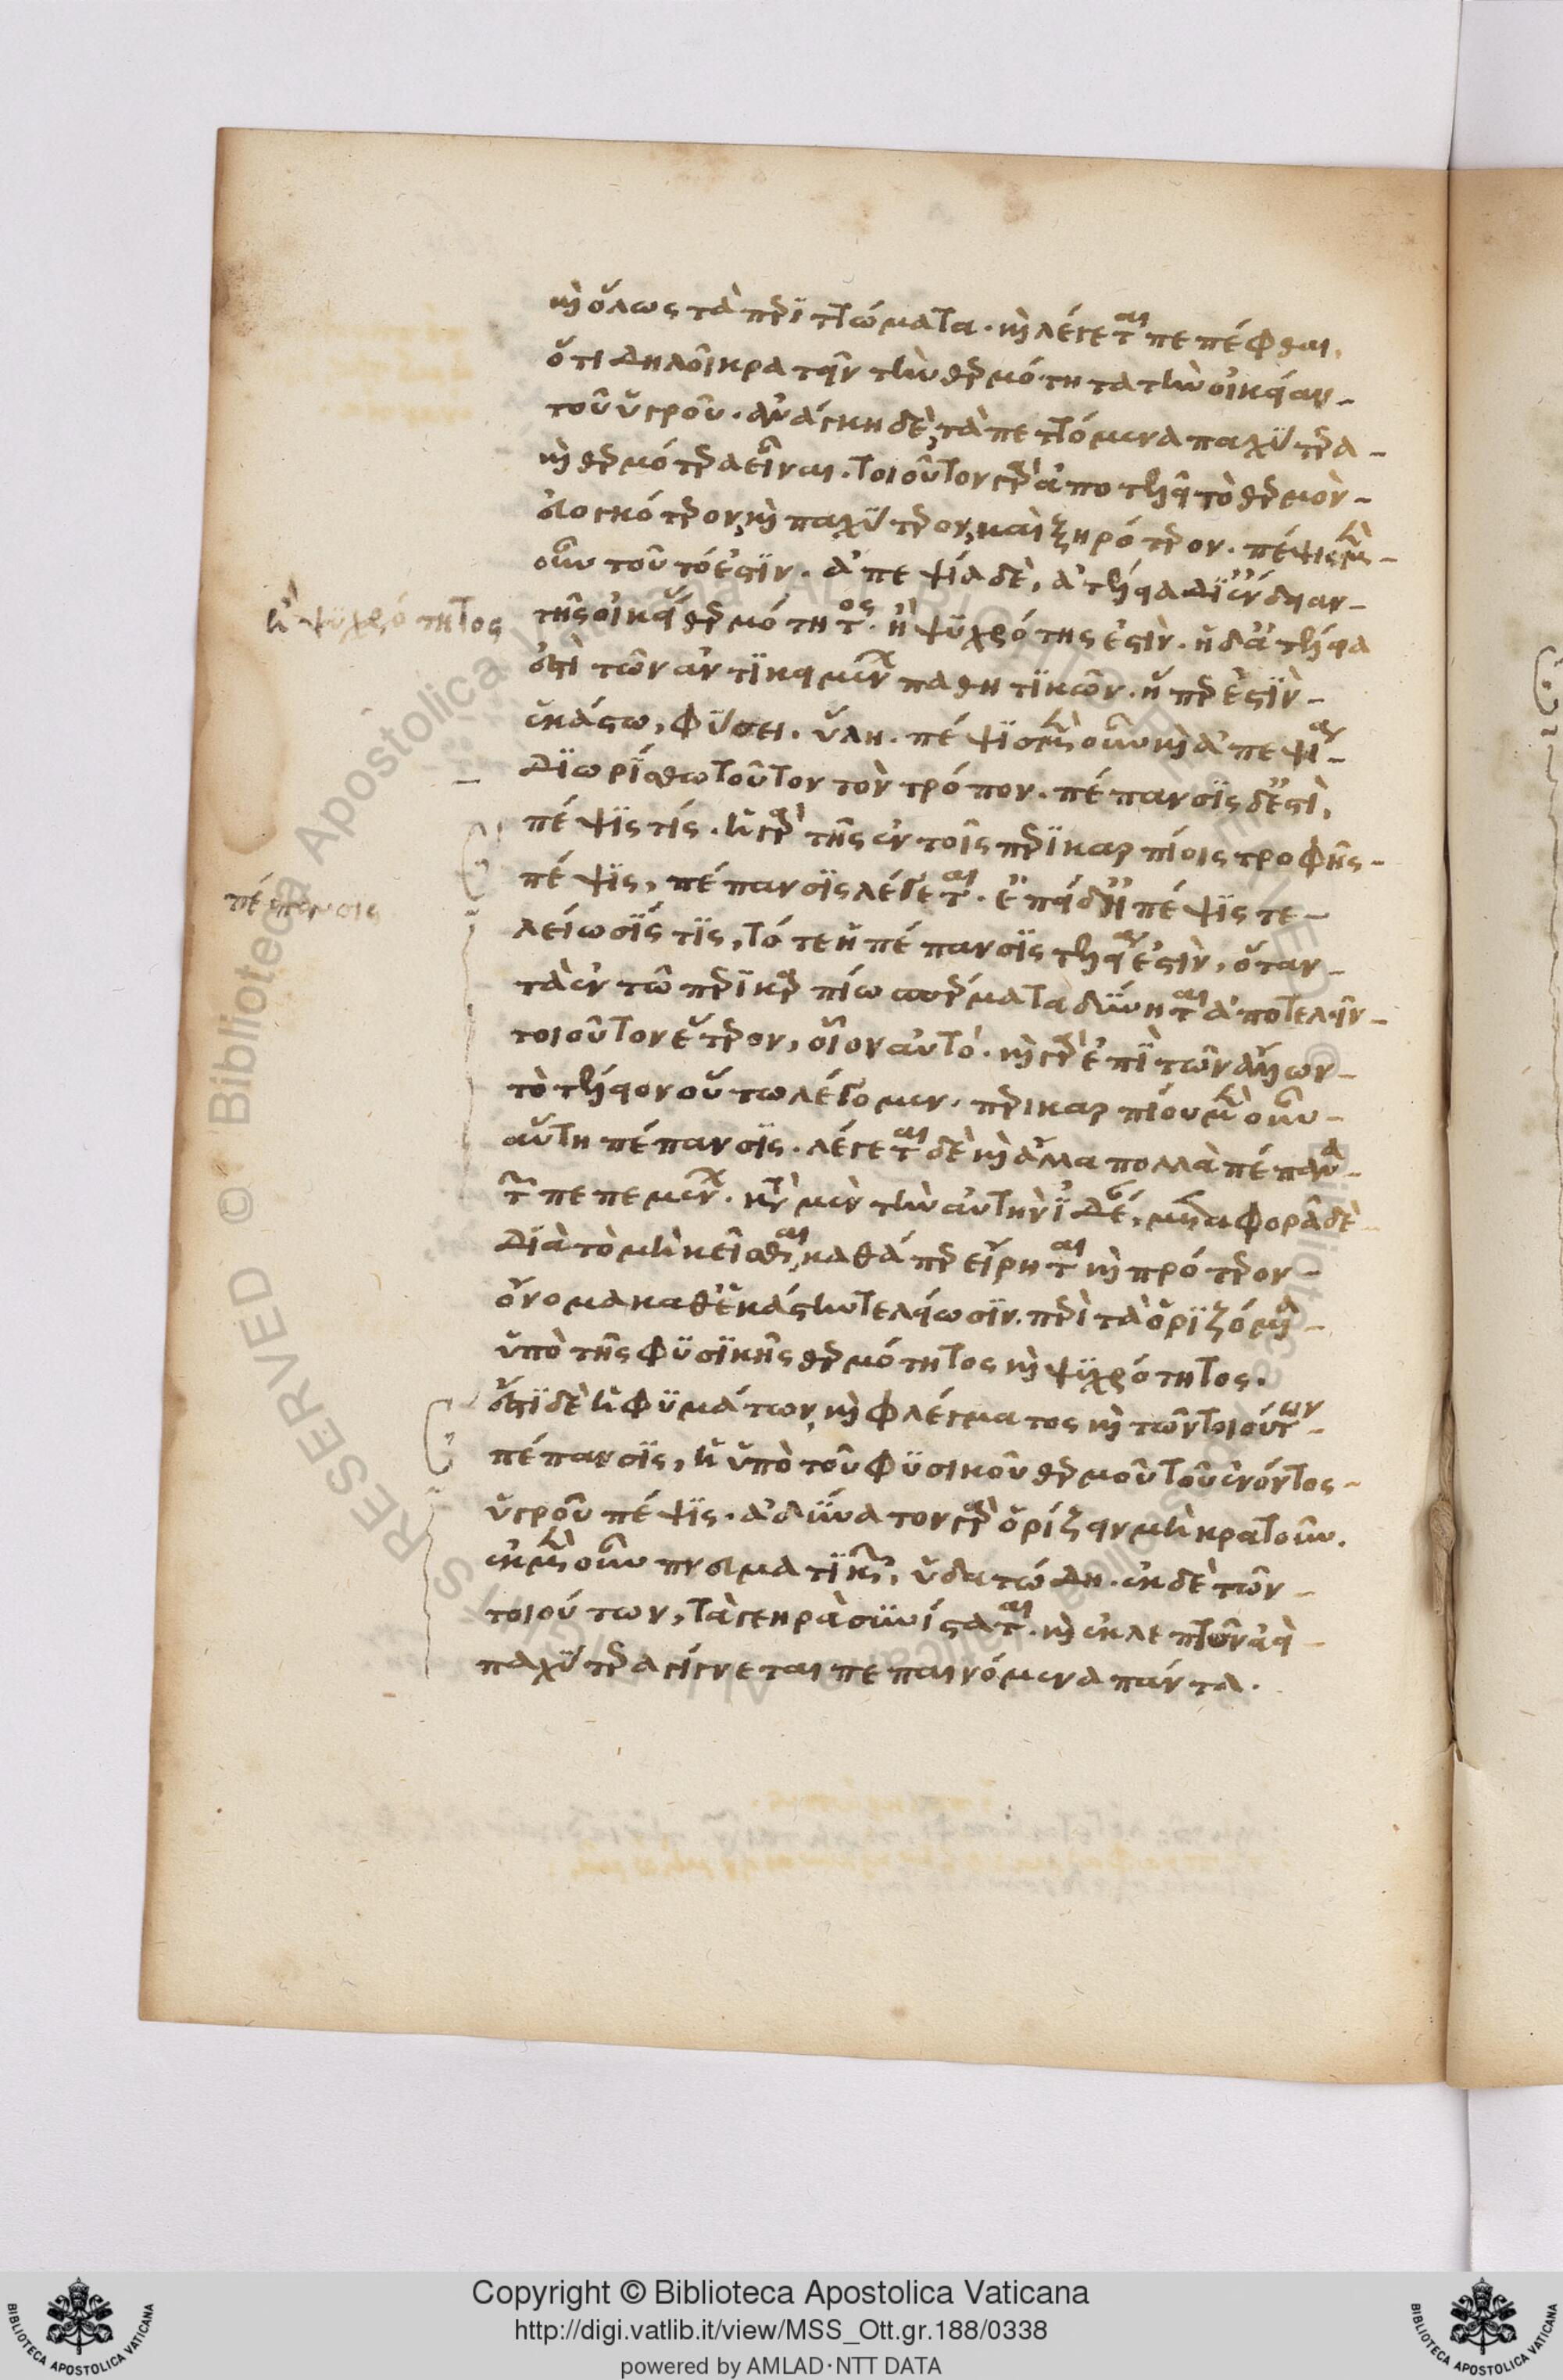 καὶ ὅλως τὰ περιττώματα. καὶ λέγεται πεπέφθαι,
ὅτι δηλοῖ κρατεῖν τὴν θερμότητα τὴν οἰκείαν
τοῦ ὑγροῦ. ἀνάγκη δὲ, τὰ πεττόμενα παχύτερα
καὶ θερμότερα εἶναι. τοιοῦτον γὰρ ἀποτελεῖ τὸ θερμὸν
ὀλογκότερον, καὶ παχύτερον, καὶ ξηρότερον. πέψις μὲν
οὖν τοῦτό ἐστιν. ἀπεψία δὲ, ἀτέλεια δι' ἔνδειαν
τῆς οἰκείας θερμότητος. ἡ ψυχρότης ἐστὶν. ἡ δ' ἀτέλεια
ἐστὶ τῶν ἀντικειμένων παθητικῶν. ἥπερ ἐστὶν
ἑκάστω, φύσει. ὕλη. πέψις μὲν οὖν καὶ ἀπεψία
διωρίσθω τοῦτον τὸν τρόπον. πέπανσις δ' ἐστὶ,
πέψίς τίς. ἡ γὰρ τῆς ἐν τοῖς περικαρπίοις τροφῆς
πέψις, πέπανσις λέγεται. ἐπεὶ δ' ἡ πέψις τε
λείωσίς τις, τότε ἡ πέπανσις τελεία ἐστὶν, ὅταν
τὰ ἐν τῶ περικαρπίω σπέρματα δύνηται ἀποτελεῖν
τοιοῦτον ἕτερον, οἷον αὐτό. καὶ γὰρ ἐπὶ τῶν ἄλλων
τὸ τέλειον οὕτω λέγομεν. περικαρπίου μὲν οὖν
αὕτη πέπανσις. λέγεται δὲ καὶ ἄλλα πολλὰ πέπανα
τῶν πεπεμμένων. κατὰ μὲν τὴν αὐτὴν ἰδέαν, μεταφορᾶ δὲ
διὰ τὸ μὴ κεῖσθαι, καθάπερ εἴρηται καὶ πρότερον
ὄνομα καθ' ἑκάστην τελείωσιν. περὶ τὰ ὁριζόμενα
ὑπὸ τῆς φυσικῆς θερμότητος καὶ ψυχρότητος.
ἔστι δὲ ἡ φυμάτων, καὶ φλέγματος καὶ τῶν τοιούτων
πέπανσις, ἡ ὑπὸ τοῦ φυσικοῦ θερμοῦ τοῦ ἐνόντος
ὑγροῦ πέψις. ἀδύνατον γὰρ ὁρίζειν μὴ κρατοῦν.
ἐκ μὲν οὖν πνευματικῶν, ὑδατώδη. ἐκ δὲ τῶν
τοιούτων, τὰ γεηρὰ συνίσταται. καὶ ἐκ λεπτῶν ἀεὶ
παχύτερα γίγνεται πεπαινόμενα πάντα.
ἡ ψυχρότητος
πέπανσις
Copyright © Biblioteca Apostolica Vaticana
http://digi.vatlib.it/view/MSS_Ott.gr.188/0338
powered by AMLAD·NTT DATA
BIBLIOTECA APOSTOLICA VATICANA
BIBLIOTECA APOSTOLICA VATICANA